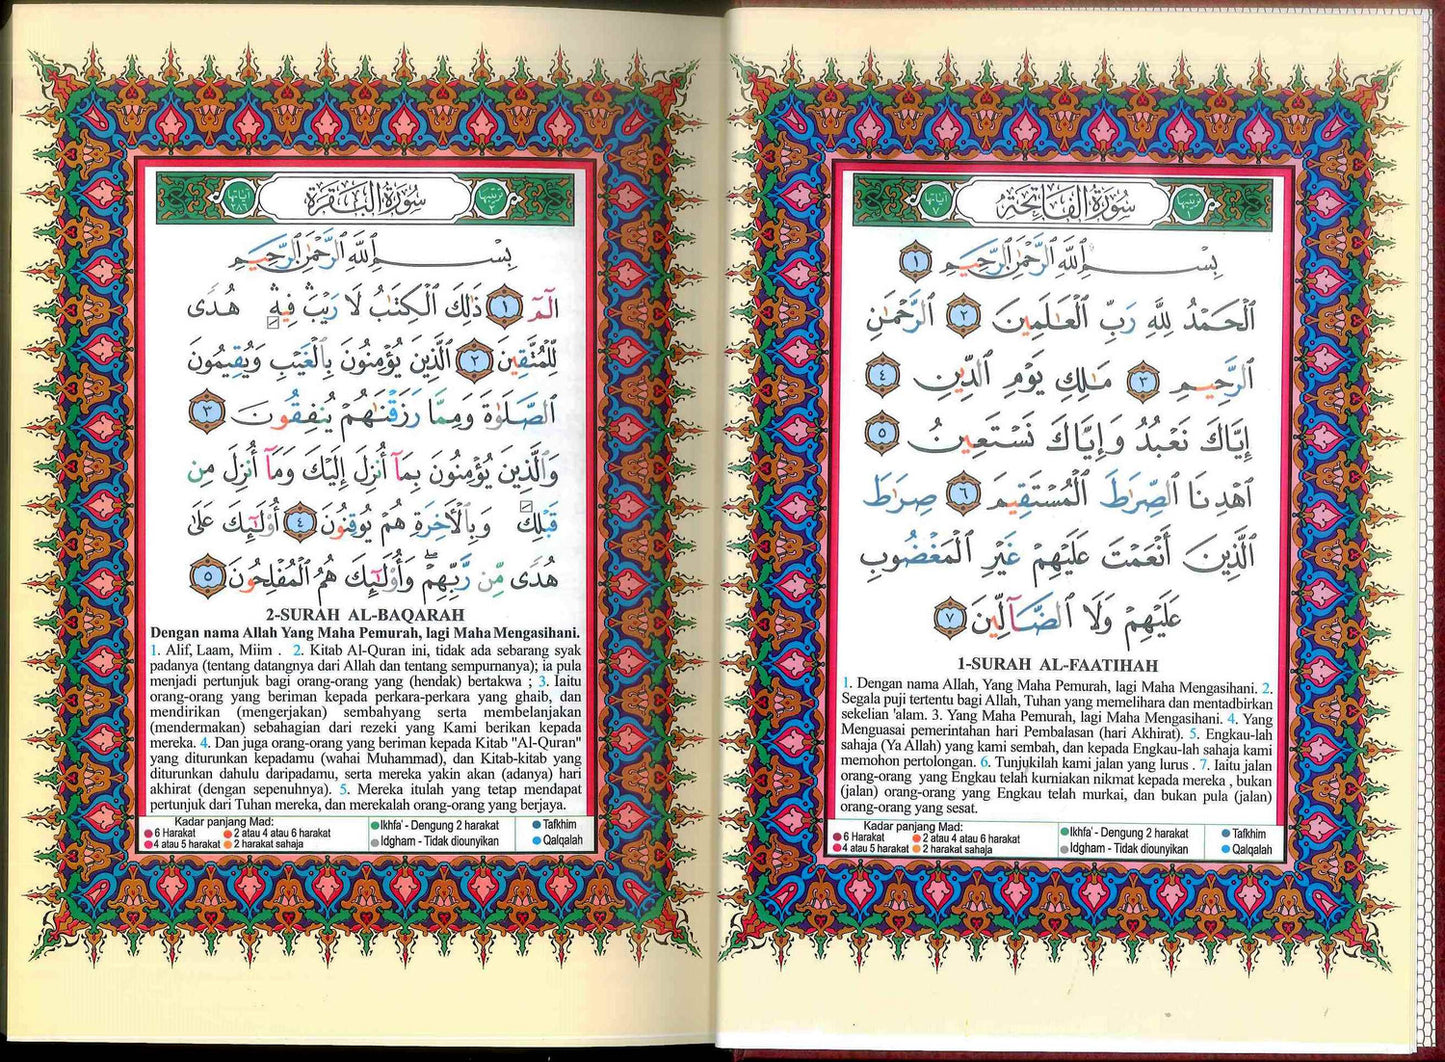 سُورَةُ الْفَاتِحَةِ
ترتيبها ١
آياتها ٧
بِسْمِ ٱللَّهِ ٱلرَّحْمَٰنِ ٱلرَّحِيمِ ١
ٱلْحَمْدُ لِلَّهِ رَبِّ ٱلْعَٰلَمِينَ ٢ ٱلرَّحْمَٰنِ
ٱلرَّحِيمِ ٣ مَٰلِكِ يَوْمِ ٱلدِّينِ ٤
إِيَّاكَ نَعْبُدُ وَإِيَّاكَ نَسْتَعِينُ ٥
ٱهْدِنَا ٱلصِّرَٰطَ ٱلْمُسْتَقِيمَ ٦ صِرَٰطَ
ٱلَّذِينَ أَنْعَمْتَ عَلَيْهِمْ غَيْرِ ٱلْمَغْضُوبِ
عَلَيْهِمْ وَلَا ٱلضَّآلِّينَ ٧
1-SURAH AL-FAATIHAH
1. Dengan nama Allah, Yang Maha Pemurah, lagi Maha Mengasihani. 2.
Segala puji tertentu bagi Allah, Tuhan yang memelihara dan mentadbirkan
sekelian 'alam. 3. Yang Maha Pemurah, lagi Maha Mengasihani. 4. Yang
Menguasai pemerintahan hari Pembalasan (hari Akhirat). 5. Engkau-lah
sahaja (Ya Allah) yang kami sembah, dan kepada Engkau-lah sahaja kami
memohon pertolongan. 6. Tunjukilah kami jalan yang lurus . 7. Iaitu jalan
orang-orang yang Engkau telah kurniakan nikmat kepada mereka , bukan
(jalan) orang-orang yang Engkau telah murkai, dan bukan pula (jalan)
orang-orang yang sesat.
Kadar panjang Mad:
6 Harakat 2 atau 4 atau 6 harakat
4 atau 5 harakat 2 harakat sahaja
Ikhfa' - Dengung 2 harakat
Idgham - Tidak diounyikan
Tafkhim
Qalqalah
سُورَةُ الْبَقَرَةِ
ترتيبها ٢
آياتها ٢٨٦
بِسْمِ ٱللَّهِ ٱلرَّحْمَٰنِ ٱلرَّحِيمِ
الٓمٓ ١ ذَٰلِكَ ٱلْكِتَٰبُ لَا رَيْبَ ۛ فِيهِ ۛ هُدًى
لِّلْمُتَّقِينَ ٢ ٱلَّذِينَ يُؤْمِنُونَ بِٱلْغَيْبِ وَيُقِيمُونَ
ٱلصَّلَوٰةَ وَمِمَّا رَزَقْنَٰهُمْ يُنفِقُونَ ٣
وَٱلَّذِينَ يُؤْمِنُونَ بِمَآ أُنزِلَ إِلَيْكَ وَمَآ أُنزِلَ مِن
قَبْلِكَ وَبِٱلْأَخِرَةِ هُمْ يُوقِنُونَ ٤ أُو۟لَٰٓئِكَ عَلَىٰ
هُدًى مِّن رَّبِّهِمْ ۖ وَأُو۟لَٰٓئِكَ هُمُ ٱلْمُفْلِحُونَ ٥
2-SURAH AL-BAQARAH
Dengan nama Allah Yang Maha Pemurah, lagi Maha Mengasihani.
1. Alif, Laam, Miim . 2. Kitab Al-Quran ini, tidak ada sebarang syak
padanya (tentang datangnya dari Allah dan tentang sempurnanya); ia pula
menjadi pertunjuk bagi orang-orang yang (hendak) bertakwa ; 3. Iaitu
orang-orang yang beriman kepada perkara-perkara yang ghaib, dan
mendirikan (mengerjakan) sembahyang serta membelanjakan
(mendermakan) sebahagian dari rezeki yang Kami berikan kepada
mereka. 4. Dan juga orang-orang yang beriman kepada Kitab "Al-Quran"
yang diturunkan kepadamu (wahai Muhammad), dan Kitab-kitab yang
diturunkan dahulu daripadamu, serta mereka yakin akan (adanya) hari
akhirat (dengan sepenuhnya). 5. Mereka itulah yang tetap mendapat
pertunjuk dari Tuhan mereka, dan merekalah orang-orang yang berjaya.
Kadar panjang Mad:
6 Harakat 2 atau 4 atau 6 harakat
4 atau 5 harakat 2 harakat sahaja
Ikhfa' - Dengung 2 harakat
Idgham - Tidak diounyikan
Tafkhim
Qalqalah